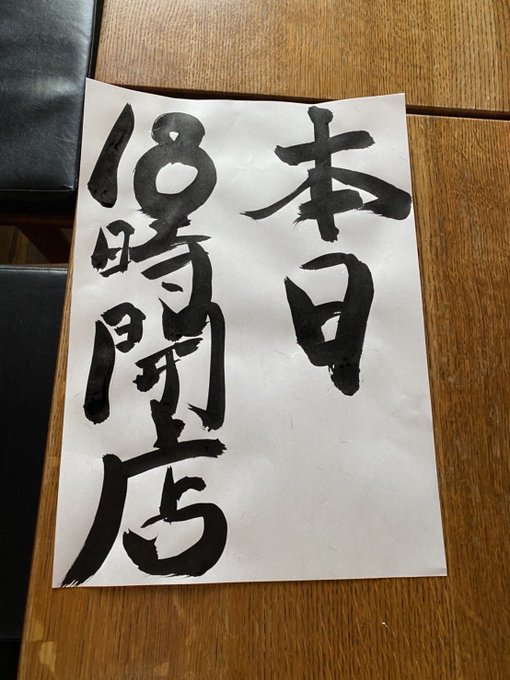 本日
18時開店